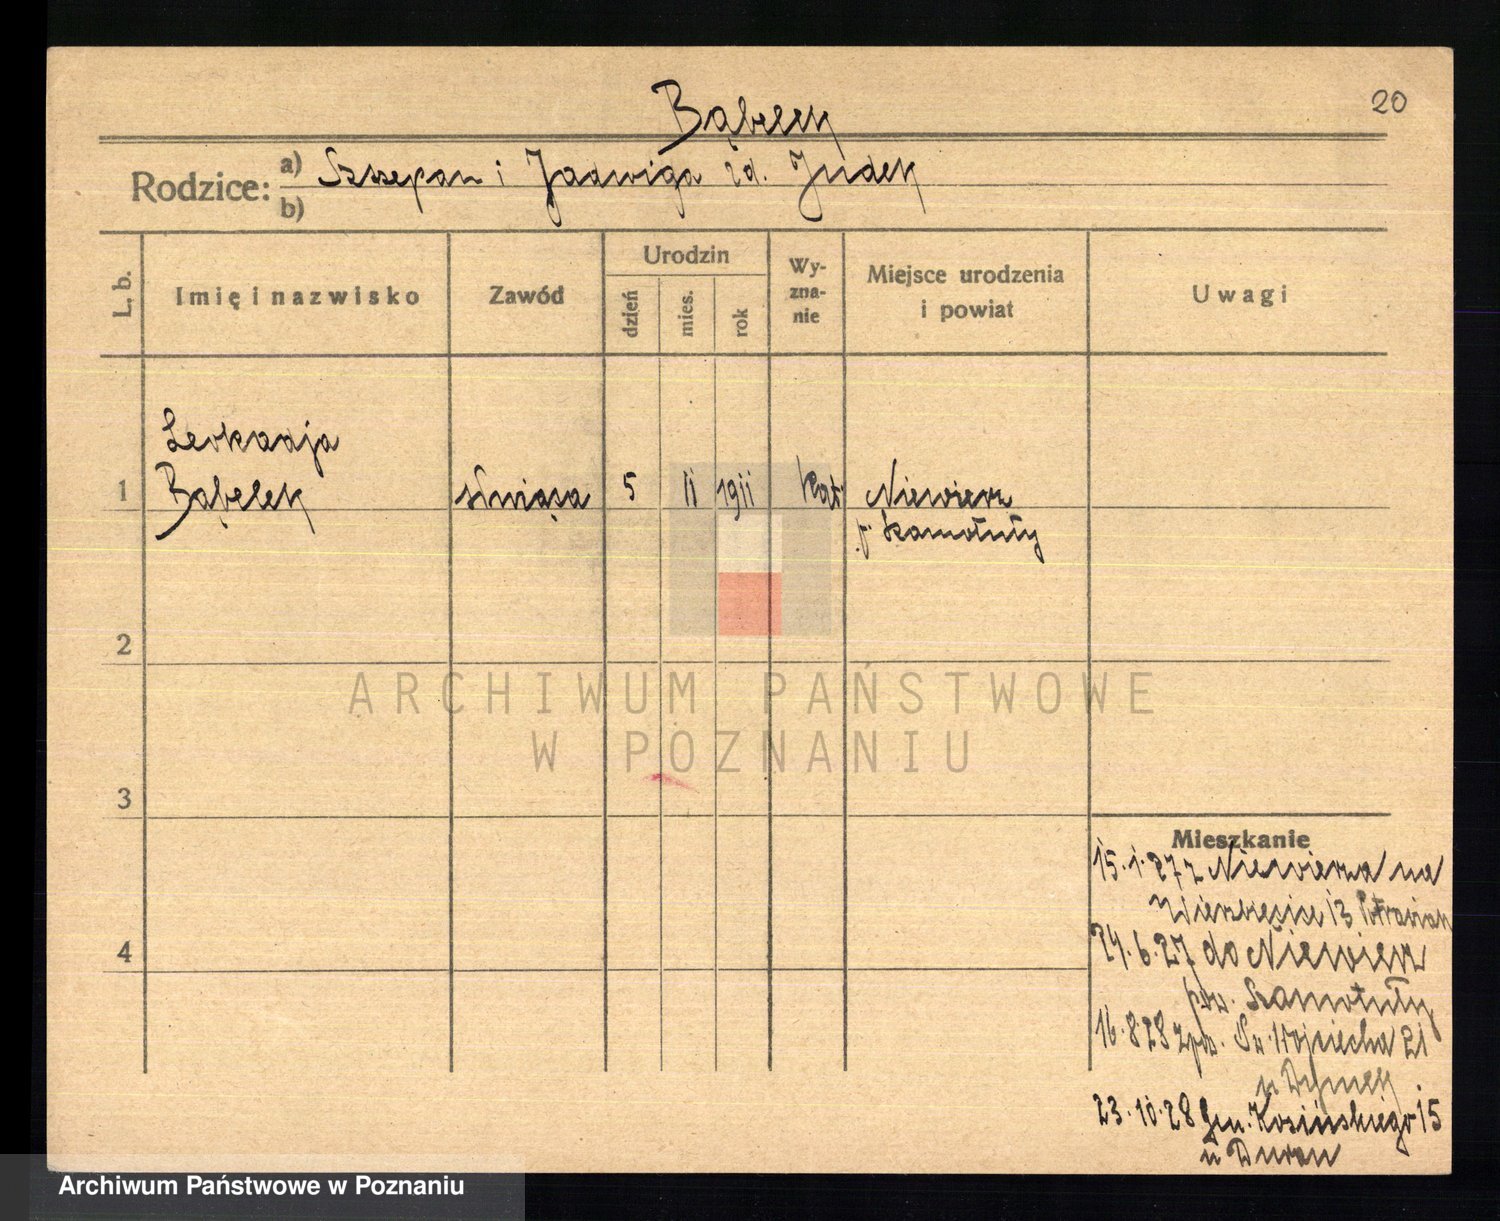 20
Bąbelek
Rodzice: a) Szczepan i Jadwiga zd. Judek
b)
L. b.
Imię i nazwisko
Zawód
Urodzin
dzień
mies.
rok
Wy-
zna-
nie
Miejsce urodzenia
i powiat
Uwagi
Leokadja
1 Bąbelek służąca 5 II 1911 kat. Niewierz
p. Szamotuły
2
ARCHIWUM PAŃSTWOWE
W POZNANIU
3
Mieszkanie
15.1.27 z Niewierza na
Wierzbięcice 13
4
24.6.27 do Niewierz
pow. Szamotuły
16.8.28 z pow. Św. Wojciecha 21
u Dymek
23.10.28 Gen. Kosińskiego 15
u Duran
Archiwum Państwowe w Poznaniu